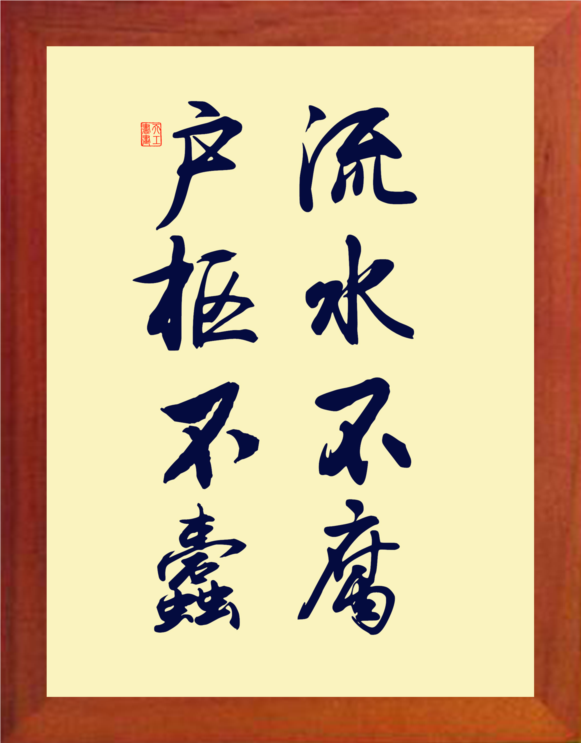 流水不腐
户枢不蠹